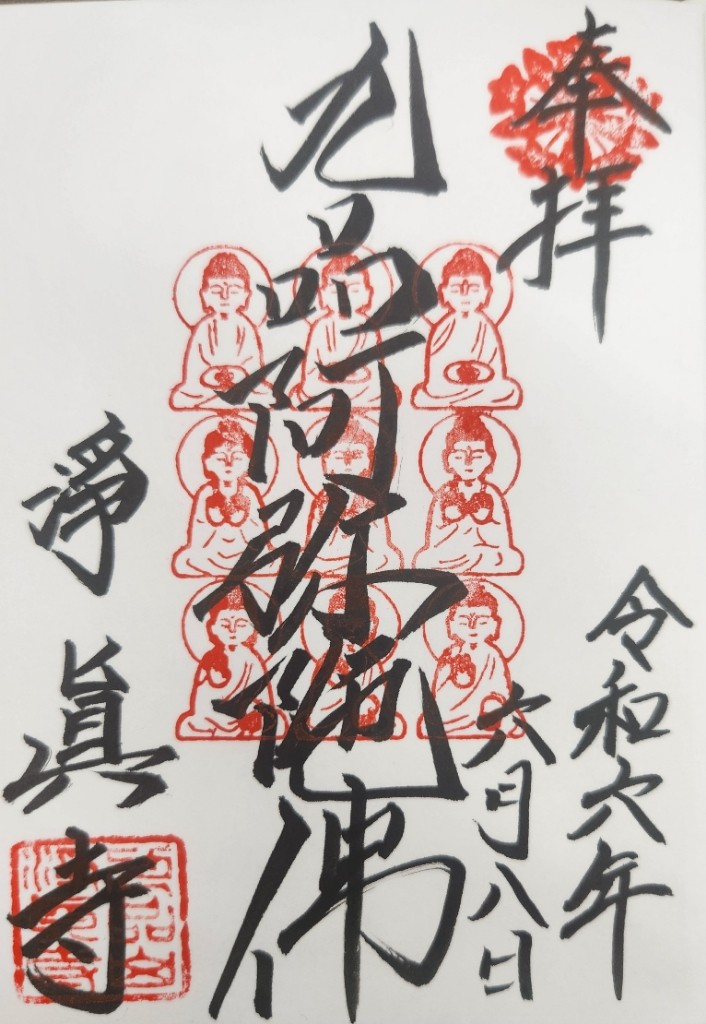 奉拝
令和六年
六月八日
九品阿弥陀佛
淨眞寺